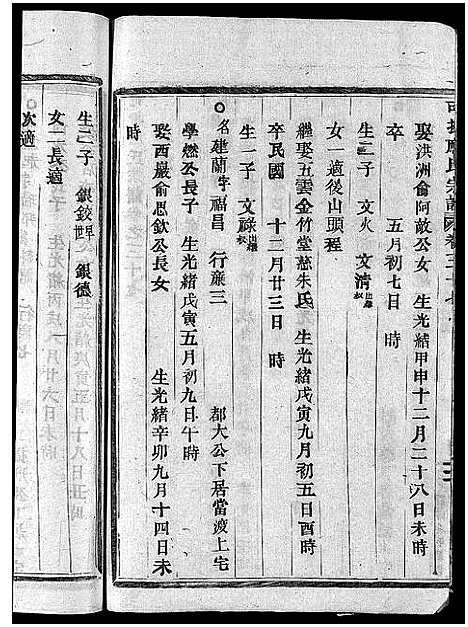 氏宗譜 卷三十
娶洪洲俞阿敵公女 生光緒甲申十二月二十八日未時
卒 五月初七日 時
生二子 文火 文清出繼
女一適後山頭程
繼娶五雲金竹堂慈朱氏 生光緒戊寅九月初五日酉時
卒民國 十二月廿三日 時
生一子 文祿
○名建蘭字福昌 行彙三 都大公下居當渡上宅
學燃公長子 生光緒戊寅五月初九日午時
娶西巖俞思欽公長女 生光緒辛卯九月十四日未
時
生二子 銀鉸 銀德
女二長適
次適